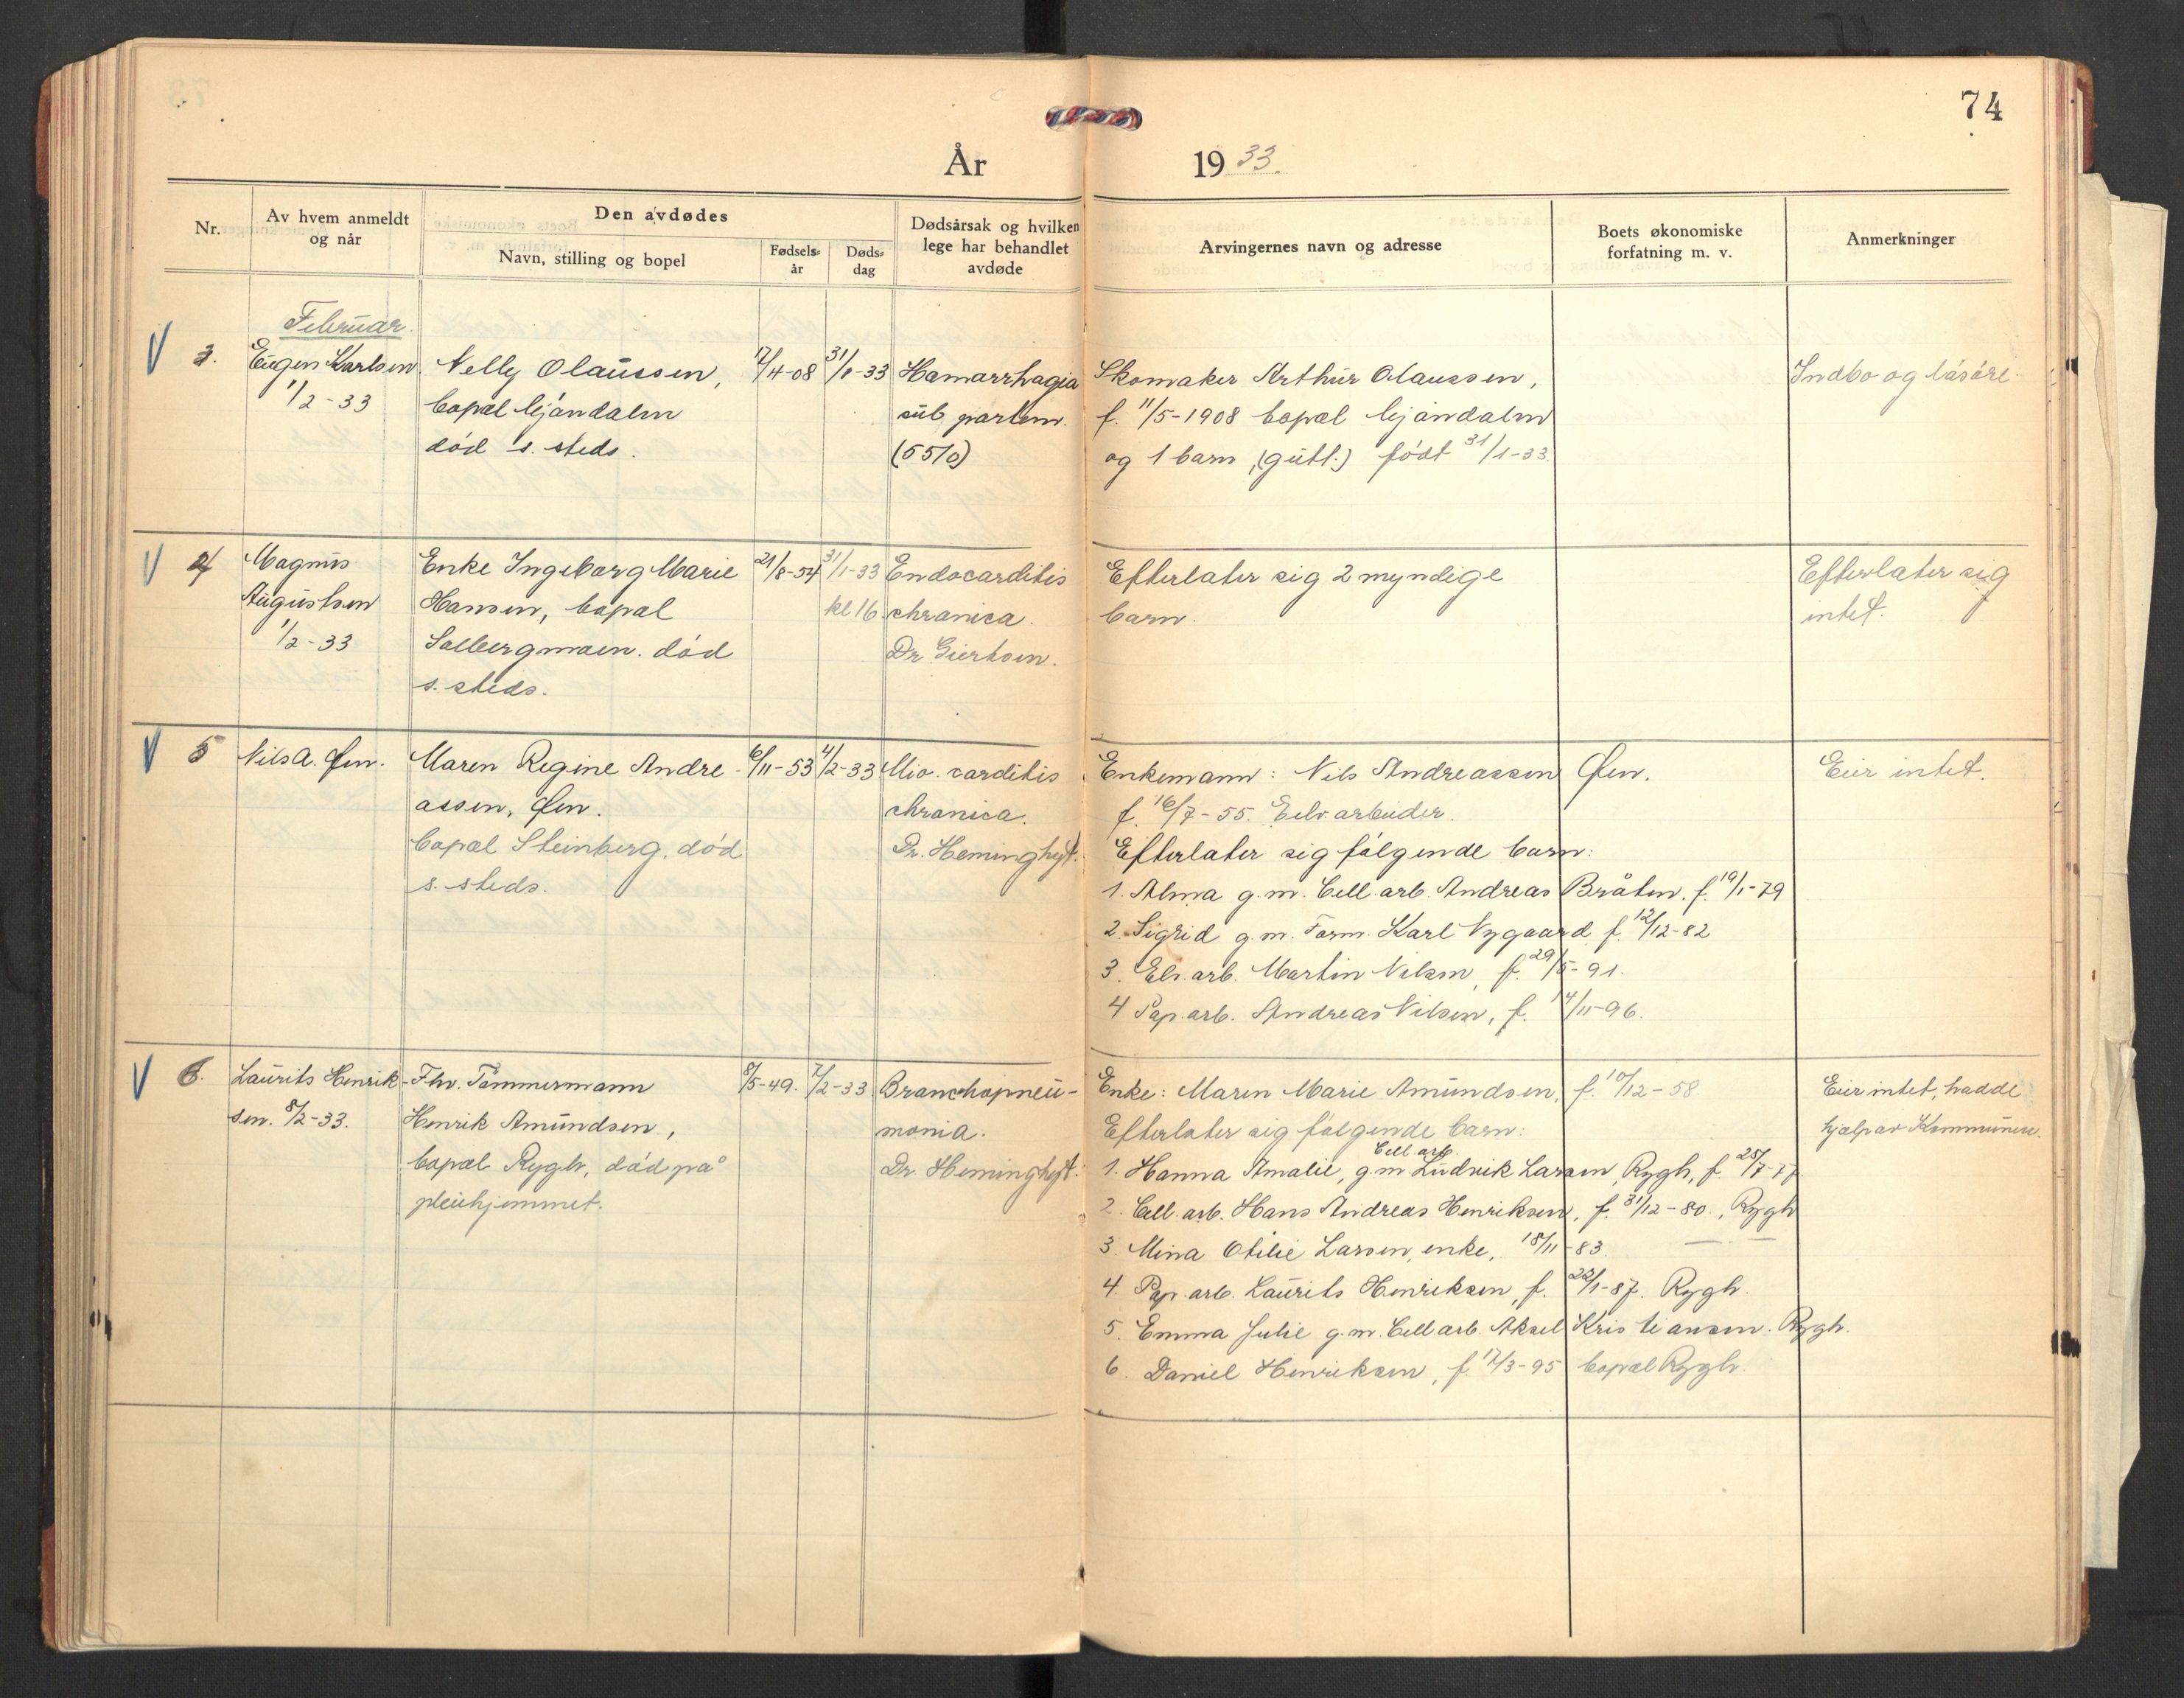 74
År 1933.
Nr.
Av hvem anmeldt
og når
Den avdødes
Navn, stilling og bopel
Fødsels-
år
Døds-
dag
Dødsårsak og hvilken
lege har behandlet
avdøde
Arvingernes navn og adresse
Boets økonomiske
forfatning m. v.
Anmerkninger
Februar.
V 3.
Eugen Karlsen
1/2-33
Nelly Olaussen,
bopæl Mjøndalen
død s. steds.
17/4-08
31/1-33
Hæmorrhagia
sub partem.
(5510)
Skomaker Arthur Olaussen,
f. 11/5-1908 bopæl Mjøndalen
og 1 barn, (gutt.) født 31/1-33.
Indbo og løsøre.
V 4
Magnus
Augustsen
1/2-33
Enke Ingeborg Marie
Hansen, bopæl
Solbergmoen. død
s. steds.
21/8-54
31/1-33
kl 16
Endocarditis
chronica.
Dr Giertsen.
Efterlater sig 2 myndige
barn.
Efterlater sig
intet.
V 5
Nils A. Øen.
Maren Regine Andre-
assen, Øen.
bopæl Steinberg. død
s. steds.
6/11-53
4/2-33
Mio. carditis
chronica.
Dr. Heminghyt.
Enkemann: Nils Andreassen Øen.
f. 16/7-55. Eelv. arbeider.
Efterlater sig følgende barn:
1. Alma g.m. Cell. arb. Andreas Bråten. f. 19/1-79
2. Sigrid g.m. Form. Karl Nygaard f. 12/12-82
3. Elv. arb. Martin Nilsen, f. 29/5-91.
4 Pap. arb. Andreas Nilsen, f. 14/11-96.
Eier intet.
V 6.
Laurits Henrik-
sen. 8/2-33.
Fhv. Tømmermann
Henrik Amundsen,
bopæl Rygh, død på
pleiehjemmet.
8/5-49.
7/2-33
Bronchopneu-
monia.
Dr. Heminghyt.
Enke: Maren Marie Amundsen, f. 10/12-58.
Efterlater sig følgende barn:
Cell. arb.
1. Hanna Amalie, g.m Ludvik Larsen, Rygh, f. 25/7-77
2. Cell. arb. Hans Andreas Henriksen, f. 31/12-80., Rygh
3. Mina Otilie Larsen, enke, 18/11-83. — " —
4. Pap. arb. Laurits Henriksen, f. 22/1-87. Rygh.
5. Emma Julie g.m. Cell arb. Aksel Kristiansen. Rygh.
6. Daniel Henriksen, f. 17/3-95 bopæl Rygh.
Eier intet, hadde
hjelp av Kommunen.